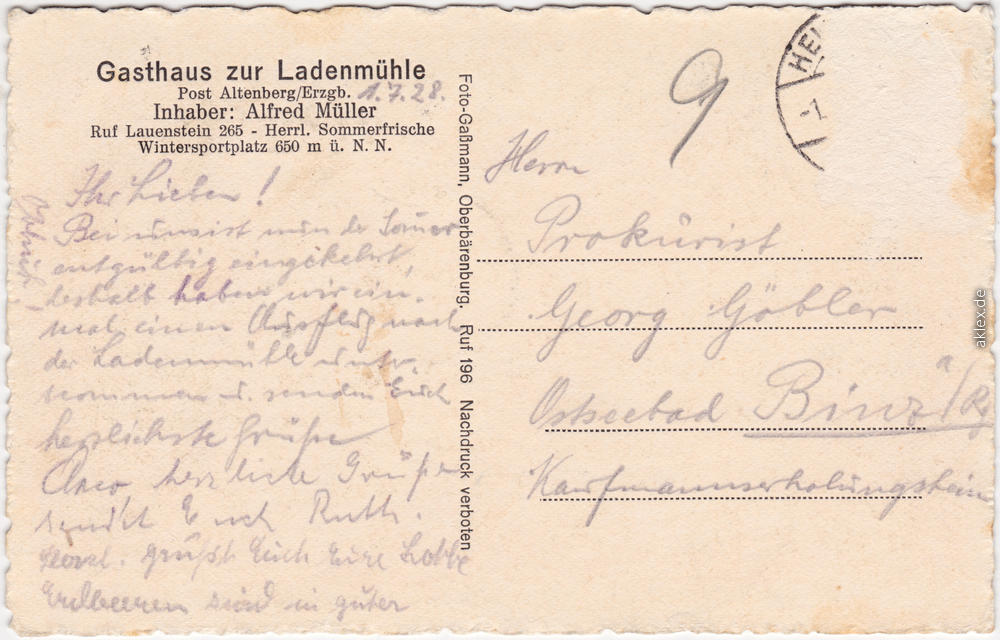 Gasthaus zur Ladenmühle
Post Altenberg/Erzgb. 1.7.28.
Inhaber: Alfred Müller
Ruf Lauenstein 265 - Herrl. Sommerfrische
Wintersportplatz 650 m ü. N. N.
Ihr Lieben!
Bei uns ist nun der
entgültig eingekehrt,
deshalb haben wir ein-
mal einen Ausflug nach
der Ladenmühle unter-
nommen u. senden Euch
herzlichste Grüße
herzliche Grüße
sendet Euch Ruth.
grüßt Euch Eure
Erdbeeren sind in guter
Foto-Gaßmann, Oberbärenburg. Ruf 196 Nachdruck verboten
9
HEI
Herrn
Prokurist
Georg Göbler
Ostseebad Binz a/Rg
Kaufmannserholungsheim
aklex.de